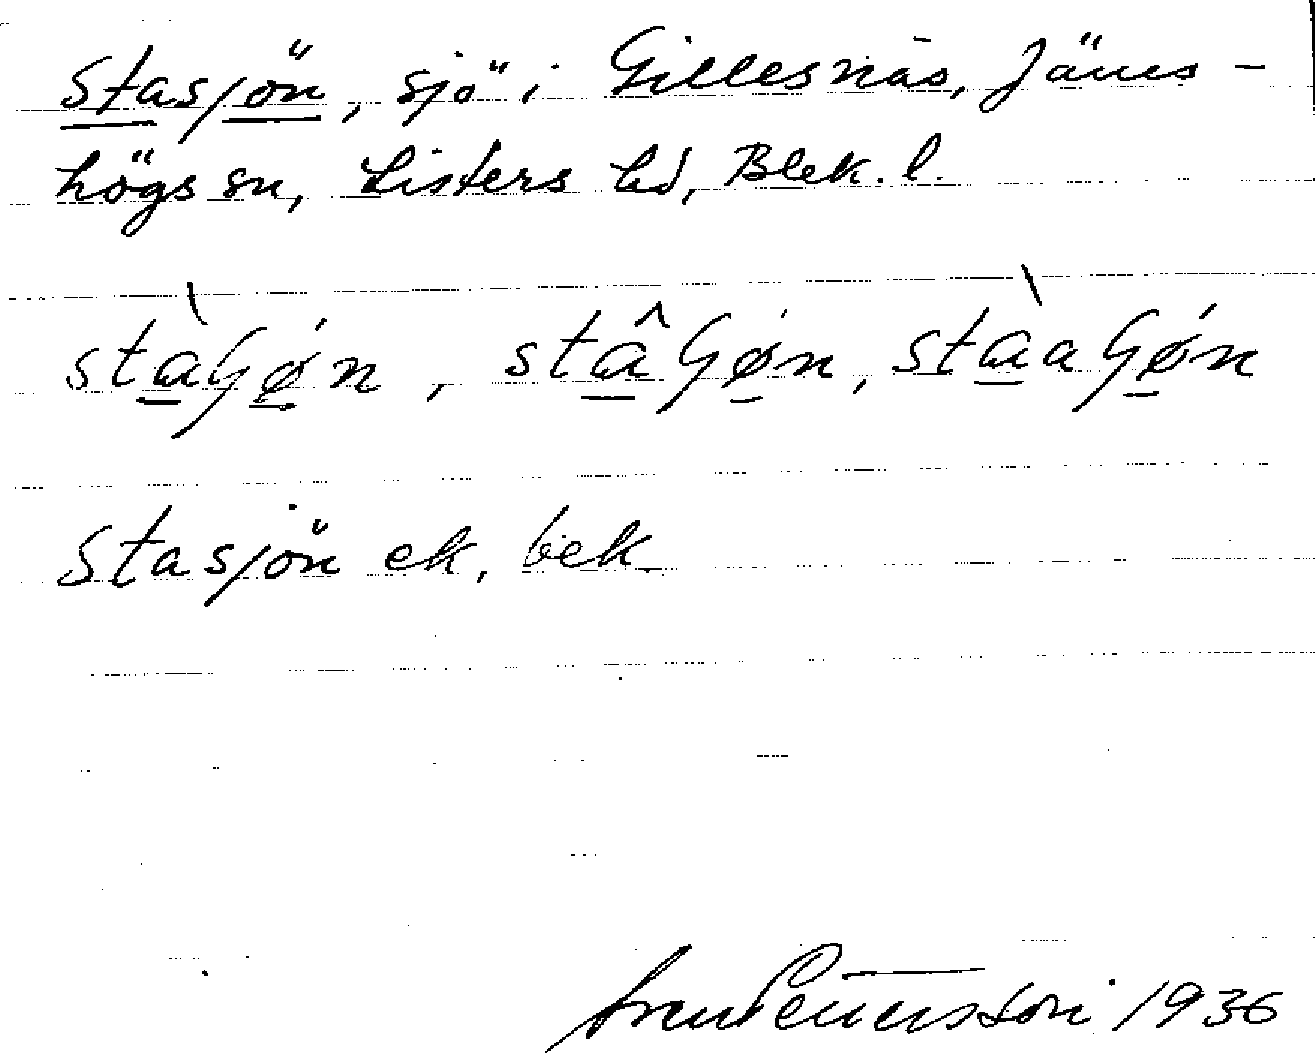 Stasjön, sjö i Gillesnäs, Jäms-
högs sn, Listers hd, Blek. l.
stà̲ɧǿ̲n, stâ̲ɧǿ̲n, stà̲aɧǿ̲n
Stasjön ek, bek.
1936